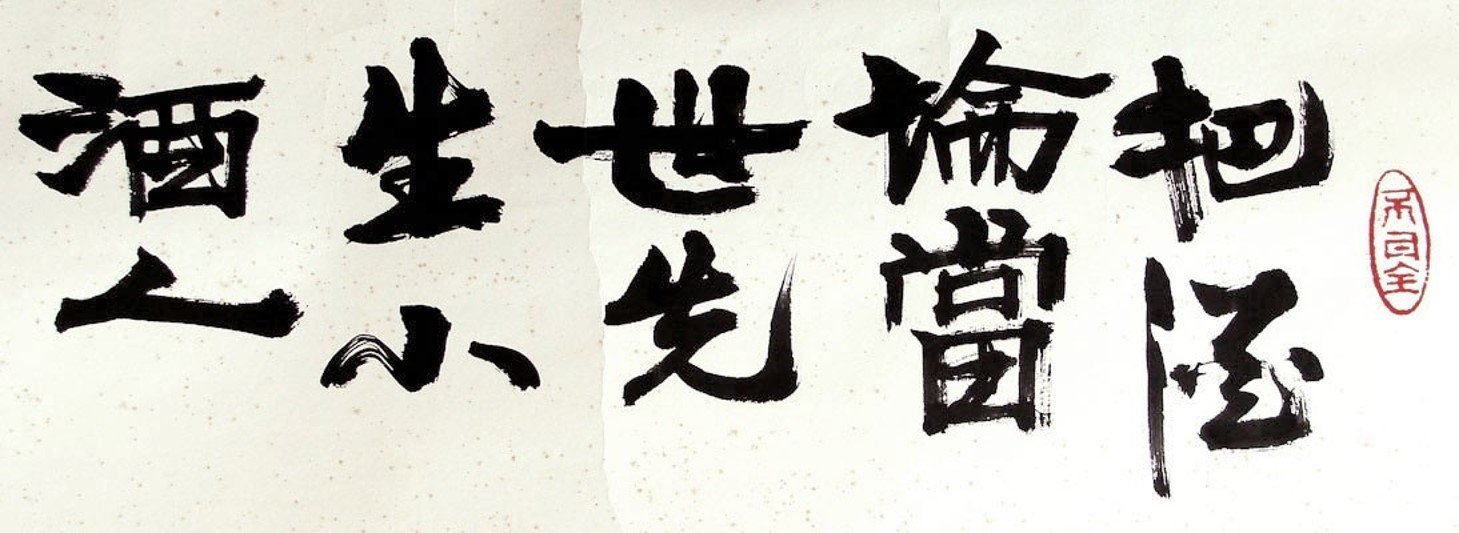 把酒
論當
世先
生小
酒人